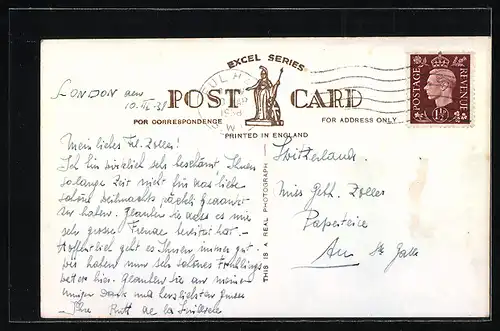 EXCEL SERIES
POST CARD
FOR CORRESPONDENCE
FOR ADDRESS ONLY
PRINTED IN ENGLAND
THIS IS A REAL PHOTOGRAPH
POSTAGE REVENUE
1½
FULH
1938
W
LONDON den
10. III. 38
Mein liebes Frl. Zoller!
Ich bin wirklich sehr beschämt Ihnen
so lange Zeit nicht für das liebe
schöne Weihnachts päckli gedankt
zu haben. Glauben Sie dass es mir
sehr grosse Freude bereitet hat.
Hoffentlich geht es Ihnen immer gut.
Wir haben nun sehr schönes Frühlings
wetter hier. Glauben Sie an meinen
innigen Dank und herzlichsten Grüsse
Ihre Ruth
Switzerland.
Miss Zoller
Papeterie
Au St Gall